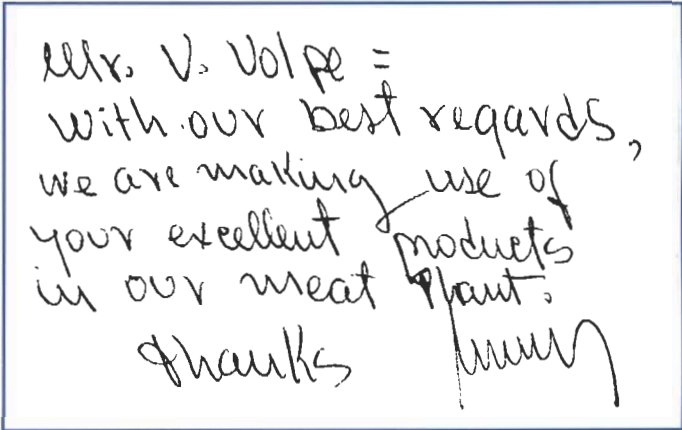 Mr. V. Volpe =
With our best regards,
we are making use of
your excellent products
in our meat Plant.
thanks